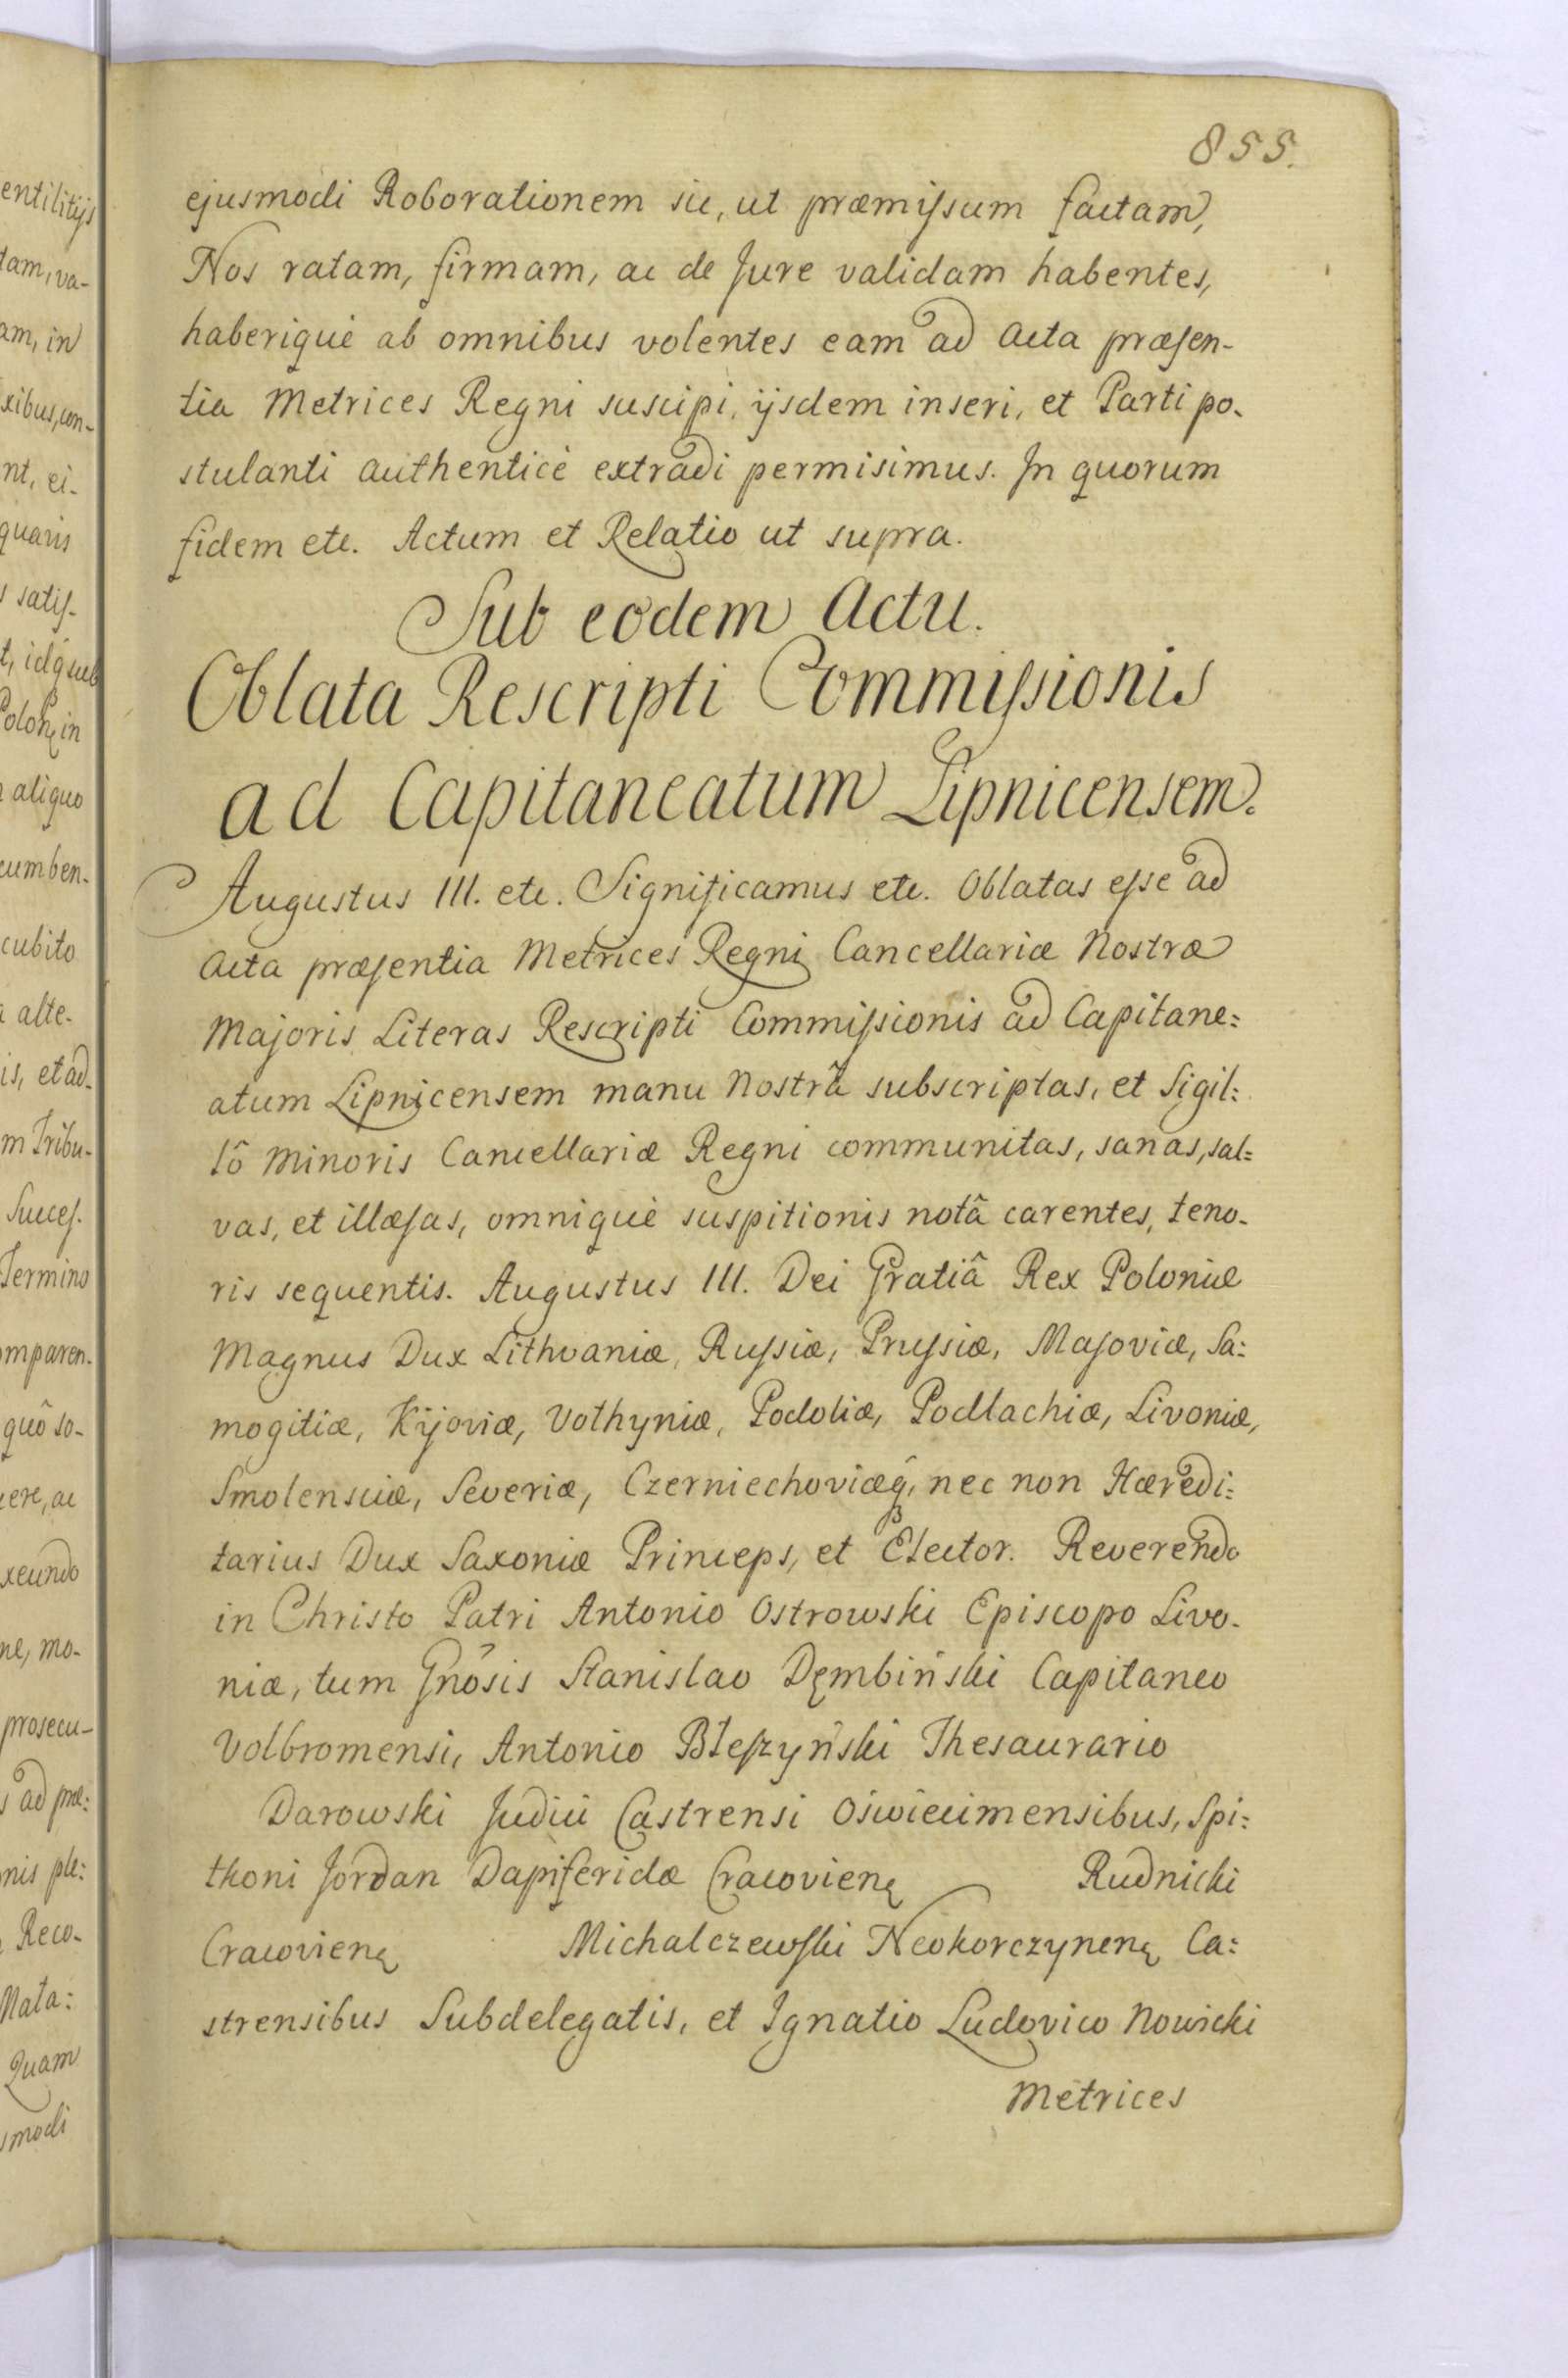 855.
ejusmodi Roborationem sic, ut præmissum factam,
Nos ratam, firmam, ac de Jure validam habentes,
haberique ab omnibus volentes eam ad Acta præsen-
tia Metrices Regni suscipi, ijsdem inseri, et Parti po-
stulanti authenticè extradi permisimus. In quorum
fidem etc. Actum et Relatio ut supra.
Sub eodem Actu.
Oblata Rescripti Commissionis
ad Capitaneatum Lipnicensem.
Augustus III. etc. Significamus etc. Oblatas esse ad
Acta præsentia Metrices Regni Cancellariæ Nostræ
Majoris Literas Rescripti Commissionis ad Capitane:
atum Lipnicensem manu Nostrâ subscriptas, et Sigil:
lô Minoris Cancellariæ Regni communitas, sanas, sal:
vas, et illæsas, omniquè suspitionis notâ carentes, teno-
ris sequentis. Augustus III. Dei Gratiâ Rex Poloniæ
Magnus Dux Lithvaniæ, Russiæ, Prussiæ, Masoviæ, Sa:
mogitiæ, Kijoviæ, Volhyniæ, Podoliæ, Podlachiæ, Livoniæ,
Smolensciæ, Severiæ, Czerniechoviæq, nec non Hæredi:
tarius Dux Saxoniæ Princeps, et Elector. Reverendo
in Christo Patri Antonio Ostrowski Episcopo Livo-
niæ, tum Gnôsis Stanislao Dęmbiński Capitaneo
Volbromensi, Antonio Błeszyński Thesaurario
Darowski Judici Castrensi Oświecimensibus, Spi:
tkoni Jordan Dapiferidæ Cracovienę Rudnicki
Cracovienę Michalczewski Neokorczynenę Ca:
strensibus Subdelegatis, et Ignatio Ludovico Nowicki
Metrices